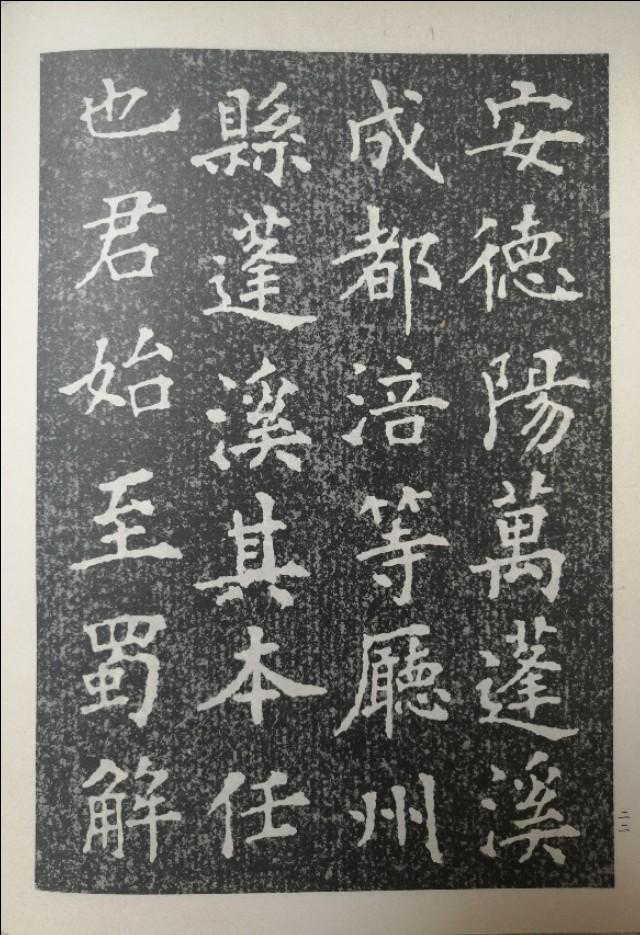 安德陽萬蓬溪
成都涪等廳州
縣蓬溪其本任
也君始至蜀解
二三